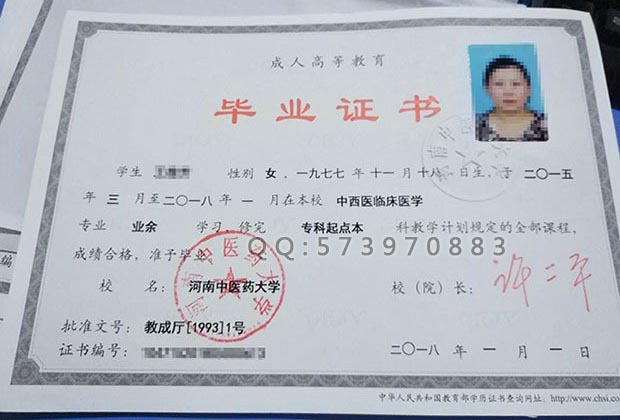 成人高等教育
毕业证书
学生 性别 女，一九七七 年 十一 月 十八 日生，于 二〇一五
年 三 月至二〇一八 年 一 月在本校 中西医临床医学
专业 业余 学习，修完 专科起点本 科教学计划规定的全部课程，
成绩合格，准予毕业。
QQ:573970883
校 名： 河南中医药大学 校（院）长： 许二平
河南中医药大学
批准文号： 教成厅[1993]1号
证书编号： 二〇一八 年 一 月 一 日
中华人民共和国教育部学历证书查询网址：http://www.chsi.co